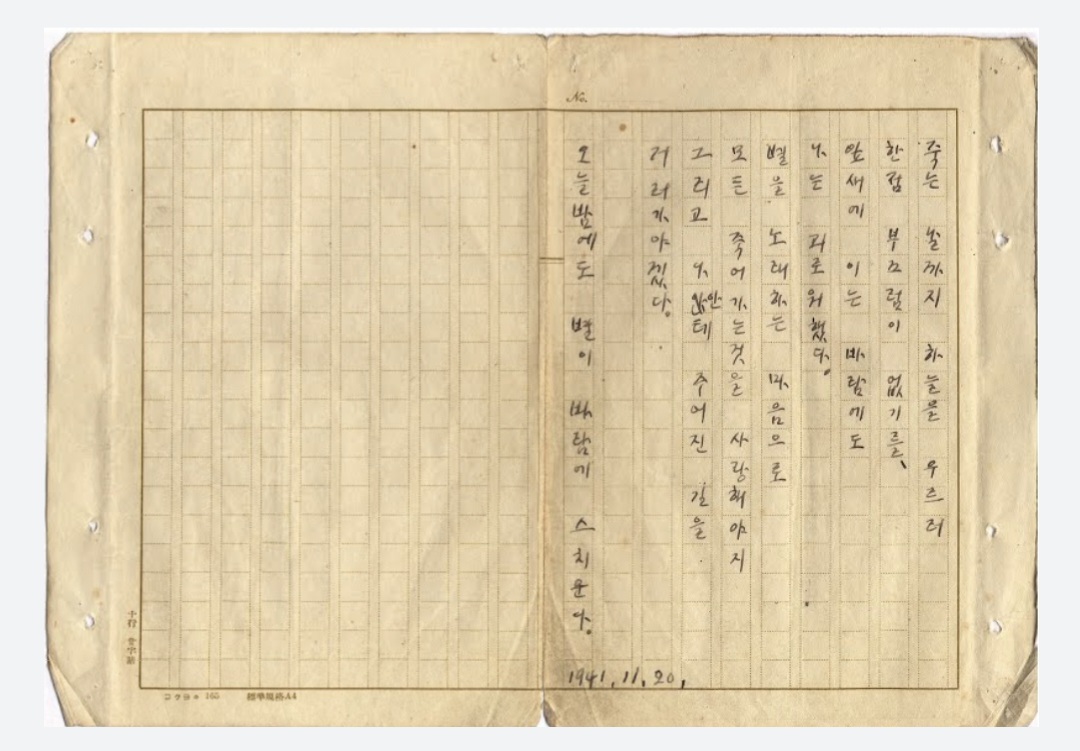 No.
죽는 날까지 하늘을 우르러
한점 부끄럼이 없기를、
잎새에 이는 바람에도
나는 괴로워했다。
별을 노래하는 마음으로
모든 죽어가는것을 사랑해야지
그리고 나안테 주어진 길을
거러가야겠다。
오늘밤에도 별이 바람에 스치운다。
1941.11.20.
十行 廿字詰
コクヨ 165 標準規格A4